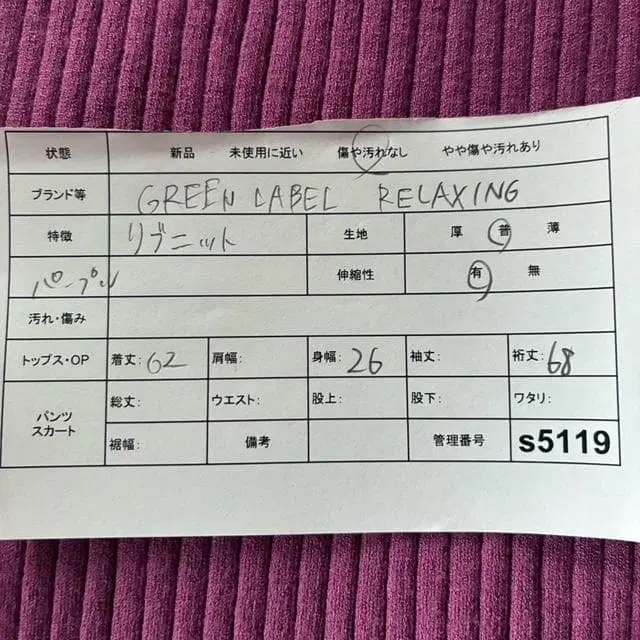 状態 新品 未使用に近い 傷や汚れなし やや傷や汚れあり
ブランド等 GREEN LABEL RELAXING
特徴 リブニット 生地 厚 普 薄
パープル 伸縮性 有 無
汚れ・傷み
トップス・OP 着丈: 62 肩幅: 身幅: 26 袖丈: 裄丈: 68
パンツ スカート 総丈: ウエスト: 股上: 股下: ワタリ:
裾幅: 備考 管理番号 s5119